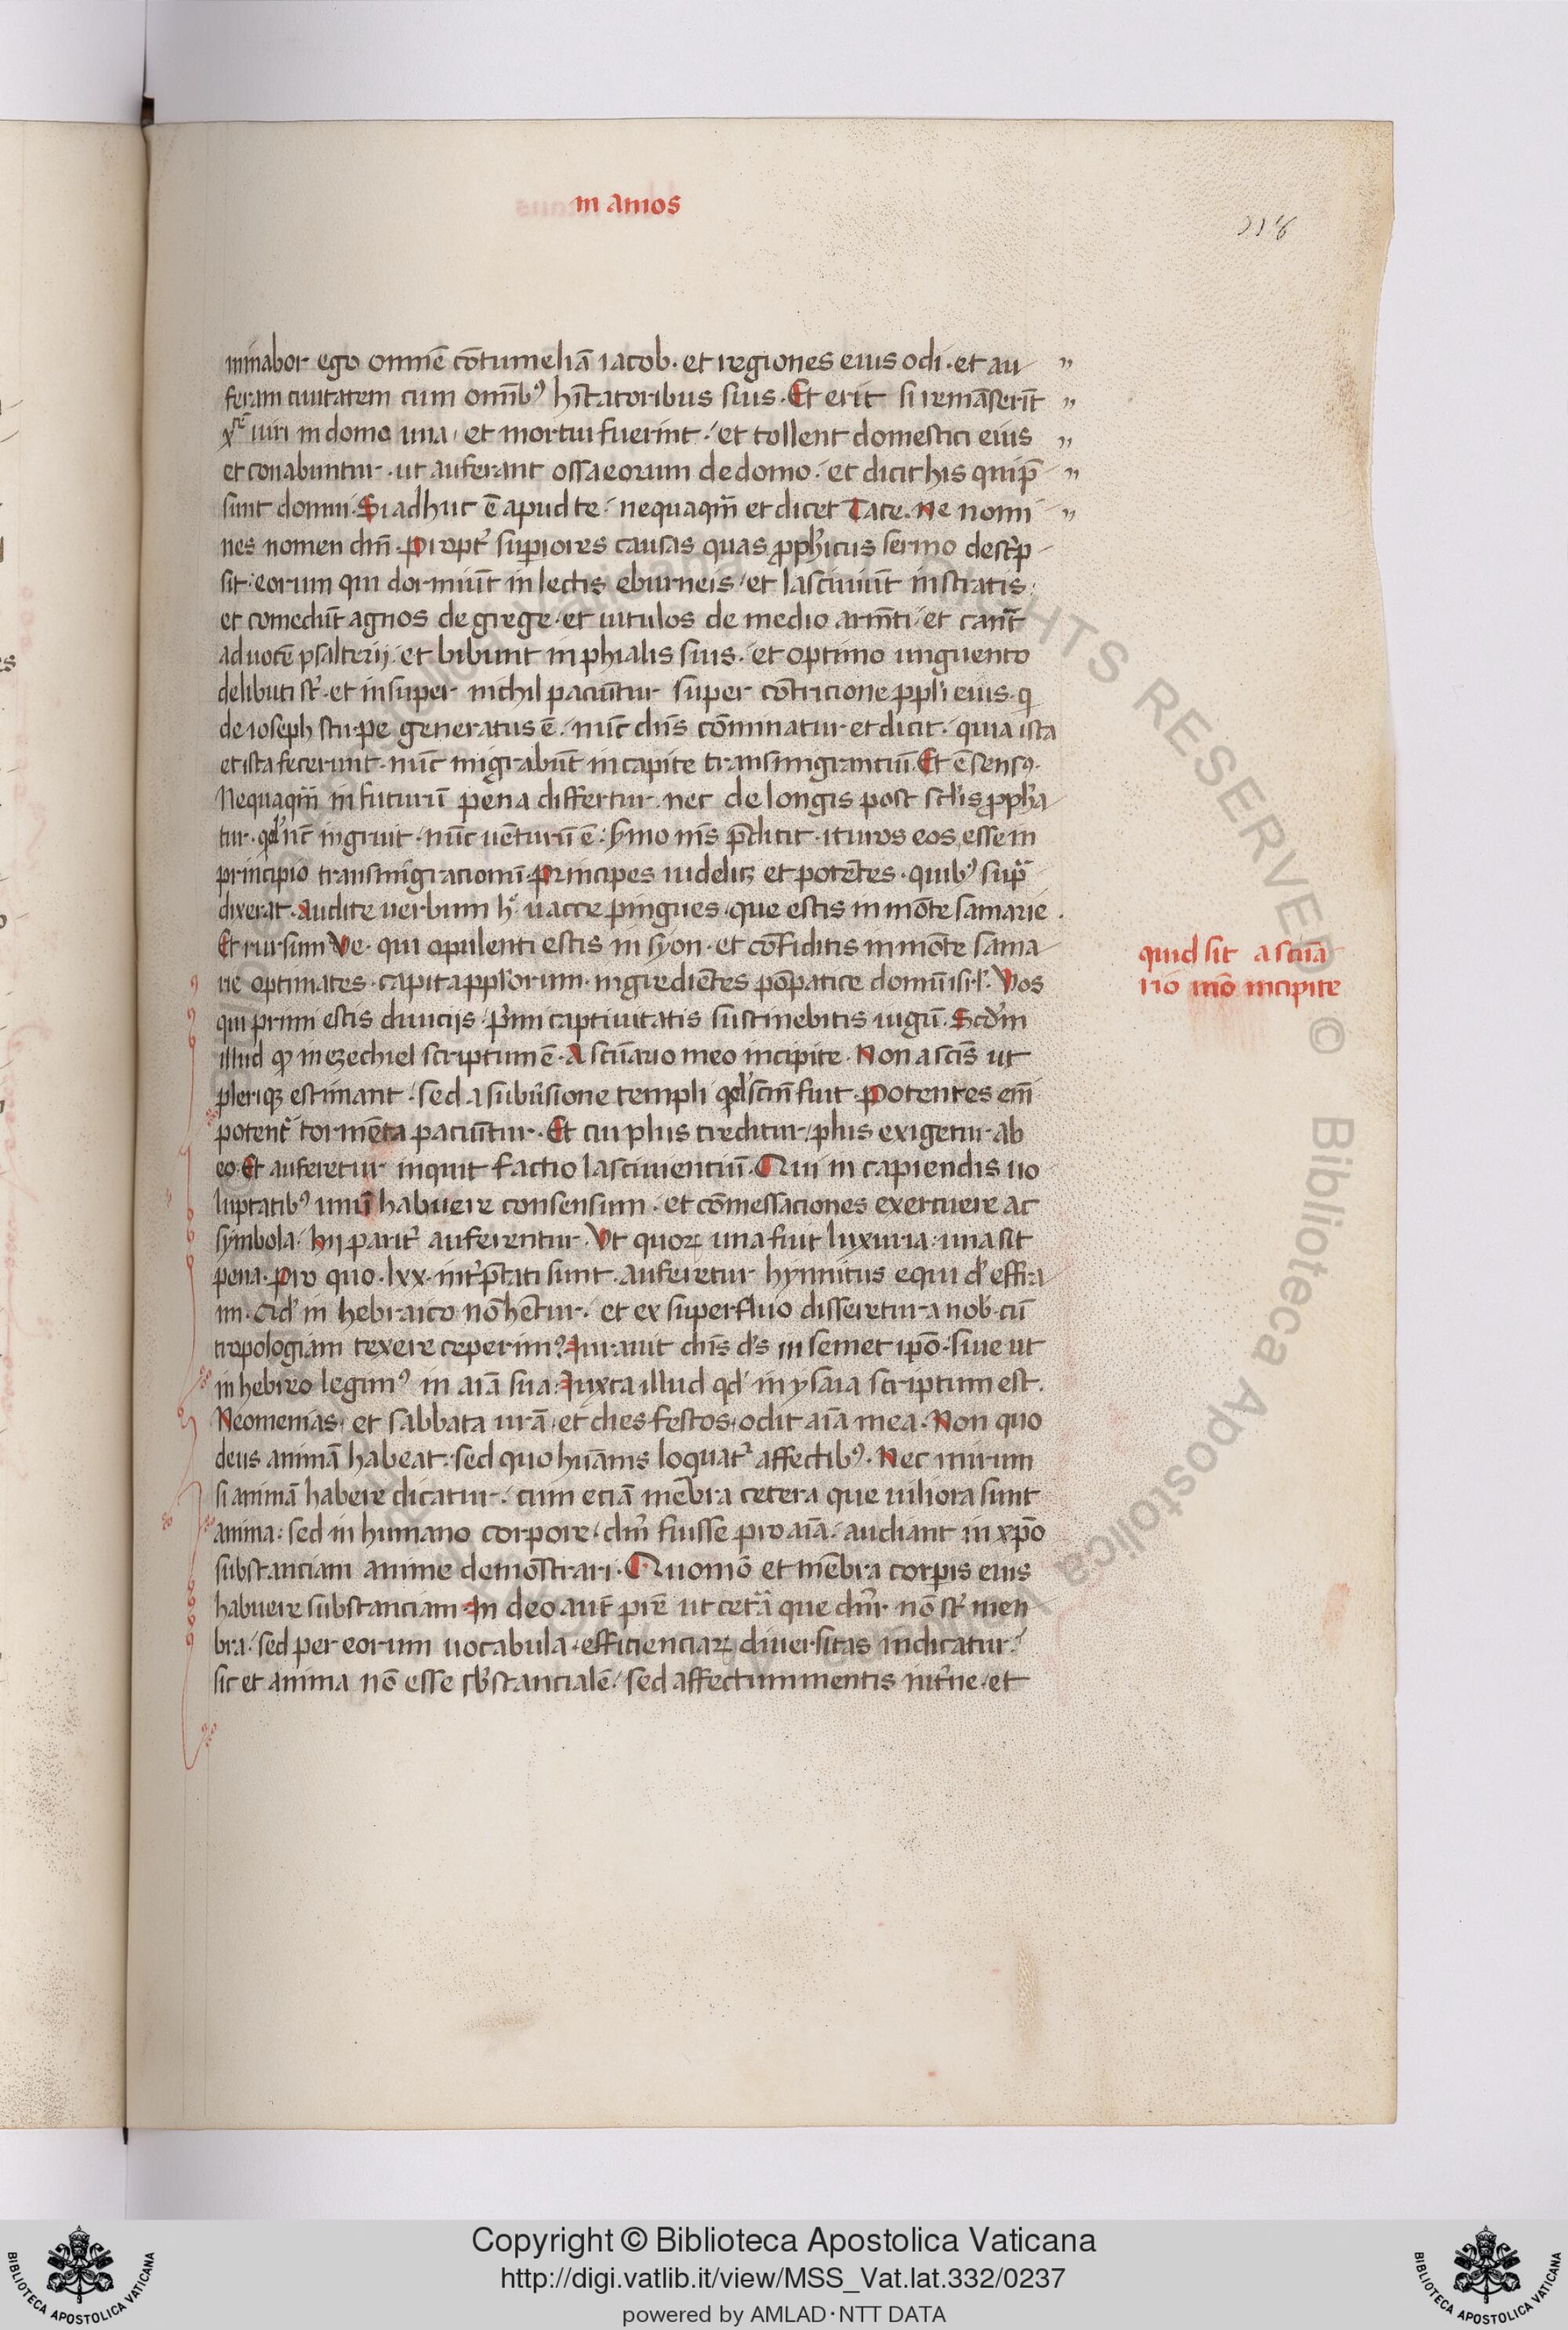 in amos
minabor ego omnē cōtumeliā iacob. et regiones eius odi. et au
feram ciuitatem cum omībꝰ hītatoribus suis. Et erit si remāserīt
xͫ uiri in domo una. et mortui fuerint. et tollent domestici eius
et conabuntur. ut auferant ossa eorum de domo. et dicit his qui
sunt domui. Si adhuc ē apud te. nequaqm̄ et dicet Tace. Ne nomi
nes nomen dn̄i. Propt̉ supiores causas quas ꝓph̓icus sermo
sit. eorum qui dormiūt in lectis eburneis. et lasciuiūt in stratis.
et comedūt agnos de grege. et uitulos de medio armēti. et canūt
ad uocē psalterij. et bibunt in phialis suis. et optimo unguento
delibuti st̄. et insuper nichil paciūtur super cōtricione ppl̓i eius. q
de ioseph stirpe generatus ē. nūc dn̄s cōminatur et dicit. quia ista
et ista fecerunt. nūc migrabūt in capite transmigranciū. Et ē sensꝰ.
Nequaqm̄ in futurū pena differtur. nec de longis post scl̓is ꝓph̓a
tur. qd̓ nc̄ ingruit. nūc uēturū ē. ymo nīs p̄dicit. ituros eos esse in
principio transmigracionū. Principes uidelicꝫ et potētes. quibꝰ supᷓ
dixerat. Audite uerbum h̓ uacce pingues. que estis in mōte samarie.
Et rursum Ve. qui opulenti estis in syon. et cōfiditis in mōte sama
rie optimates. capita ppl̓orum. ingrediētes pōpatice domū isr̓l. Vos
qui primi estis diuicijs. p̓mi captiuitatis sustinebitis iugū. Scd̓m
illud qͦ in ezechiel scriptum ē. A scūario meo incipite. Non a scīs ut
pleriqꝫ estimant. sed a subūsione templi qd̓ scm̄ fuit. Potentes em̄
potent̉ tormēta paciūtur. Et cui plus creditur. plus exigetur ab
eo. Et auferetur inquit factio lasciuienciū. Qui in capiendis uo
luptatibꝰ unū habuere consensum. et cōmessaciones exercuere ac
symbola. hij parit̉ auferentur. Vt quoꝝ una fuit luxuria. una sit
pena. Pro quo .lxx. int̉p̄tati sunt. auferetur hynnitus equi d̓ effra
im. Qd̓ in hebraico nō hētur. et ex superfluo disseretur a nob̓. cū
tropologiam texere ceperimꝰ. Iurauit dn̄s d̓s in semet ip̄o. siue ut
in hebreo legimꝰ in aīa sua. Iuxta illud qd̓ in ysaia scriptum est.
Neomenias. et sabbata urā. et dies festos. odit aīa mea. Non quo
deus animā habeat. sed quo huāmis loquat̉ affectibꝰ. Nec mirum
si animā habere dicatur. cum eciā mēbra cetera que uiliora sunt
anima. sed in humano corpore. dn̄r fuisse pro aīa. audiant in xp̄o
substanciam anime demōstrari. Quomō et mēbra corpis eius
habuere substanciam. In deo aut̄ pr̄e ut cetᷓa que dn̄r nō st̄ men
bra. sed per eorum uocabula. efficienciaꝝ diuersitas indicatur.
sic et anima nō esse sb̓stancialē. sed affectum mentis int̉ne. et
quid sit a scūa
rio mō incipite
Copyright © Biblioteca Apostolica Vaticana
http://digi.vatlib.it/view/MSS_Vat.lat.332/0237
powered by AMLAD · NTT DATA
BIBLIOTECA APOSTOLICA VATICANA
BIBLIOTECA APOSTOLICA VATICANA